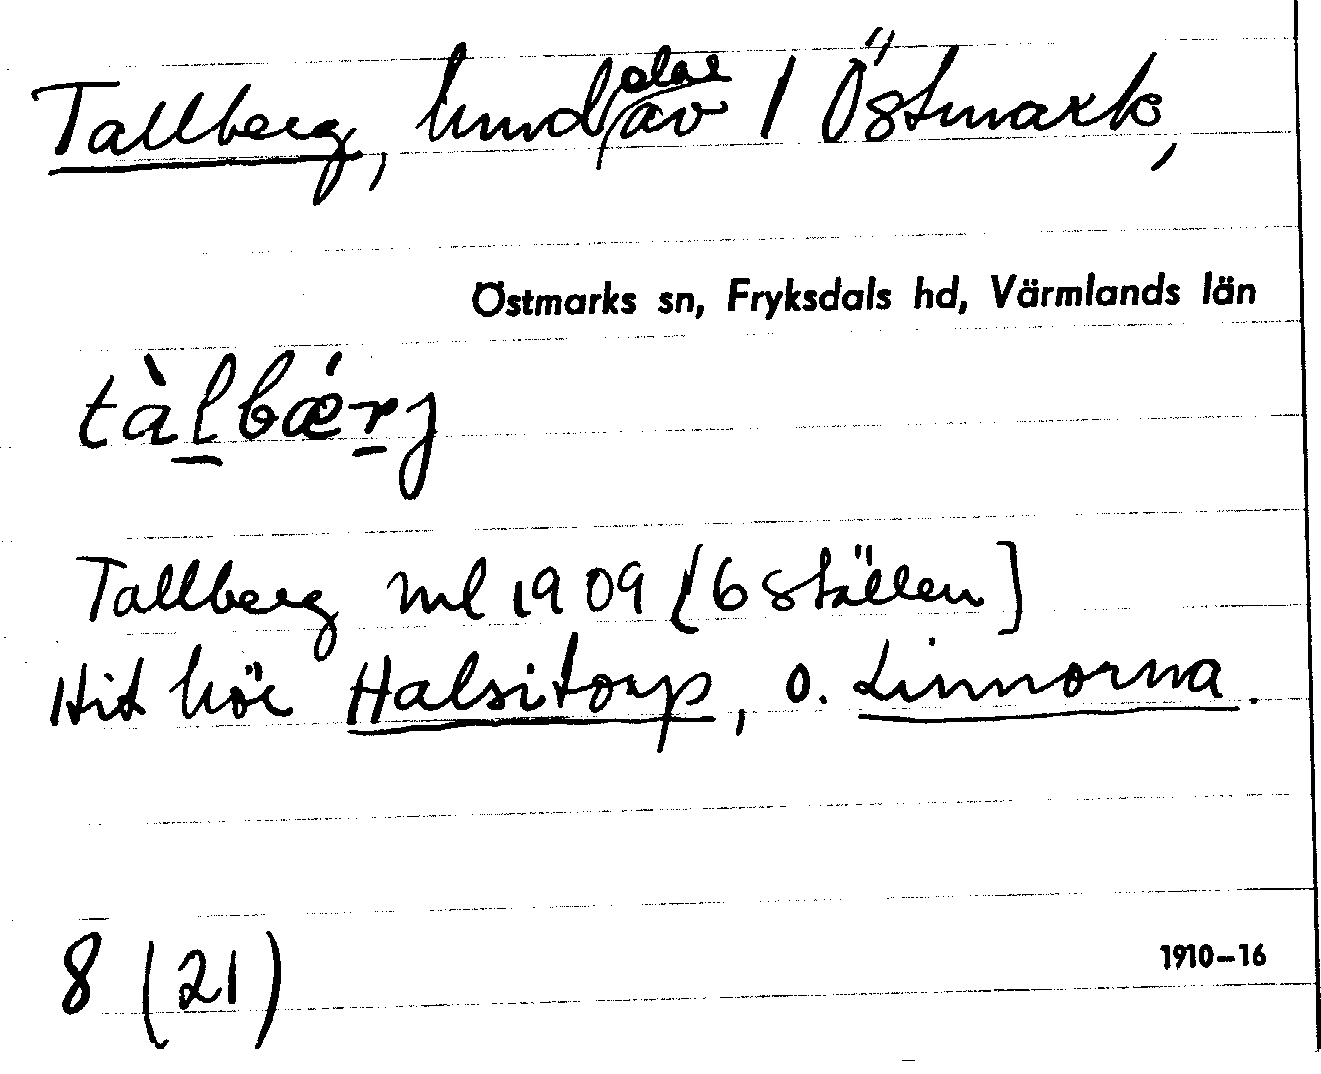 Tallberg, hmd av 1 Östmark,
Östmarks sn, Fryksdals hd, Värmlands län
tàl̠bǽr̠j
Tallberg ml 1909 [6 ställen]
Hit hör Halsitorp, o. Linnorna.
8 (21)
1910–16